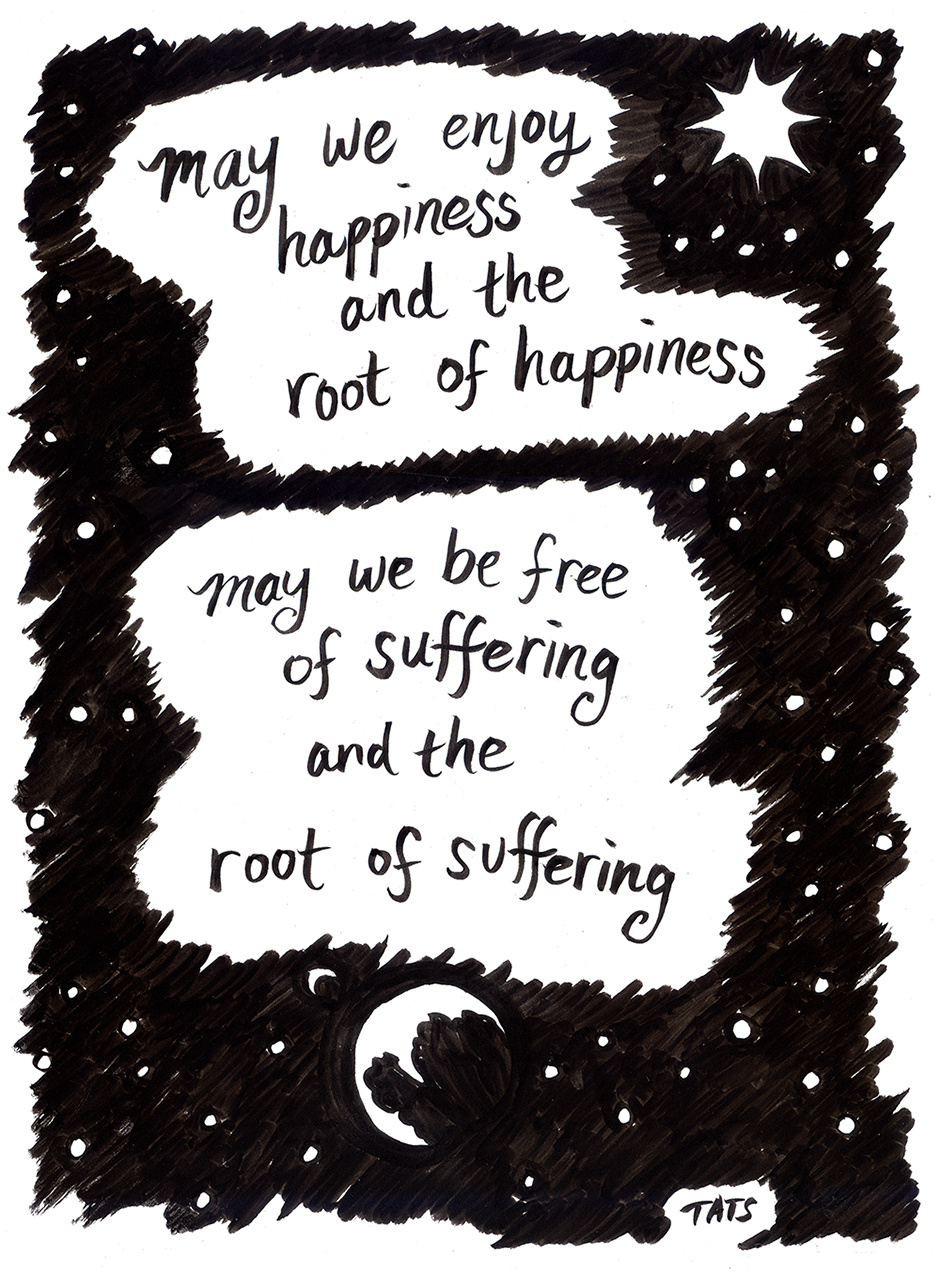 may we enjoy
happiness
and the
root of happiness
may we be free
of suffering
and the
root of suffering
TATS